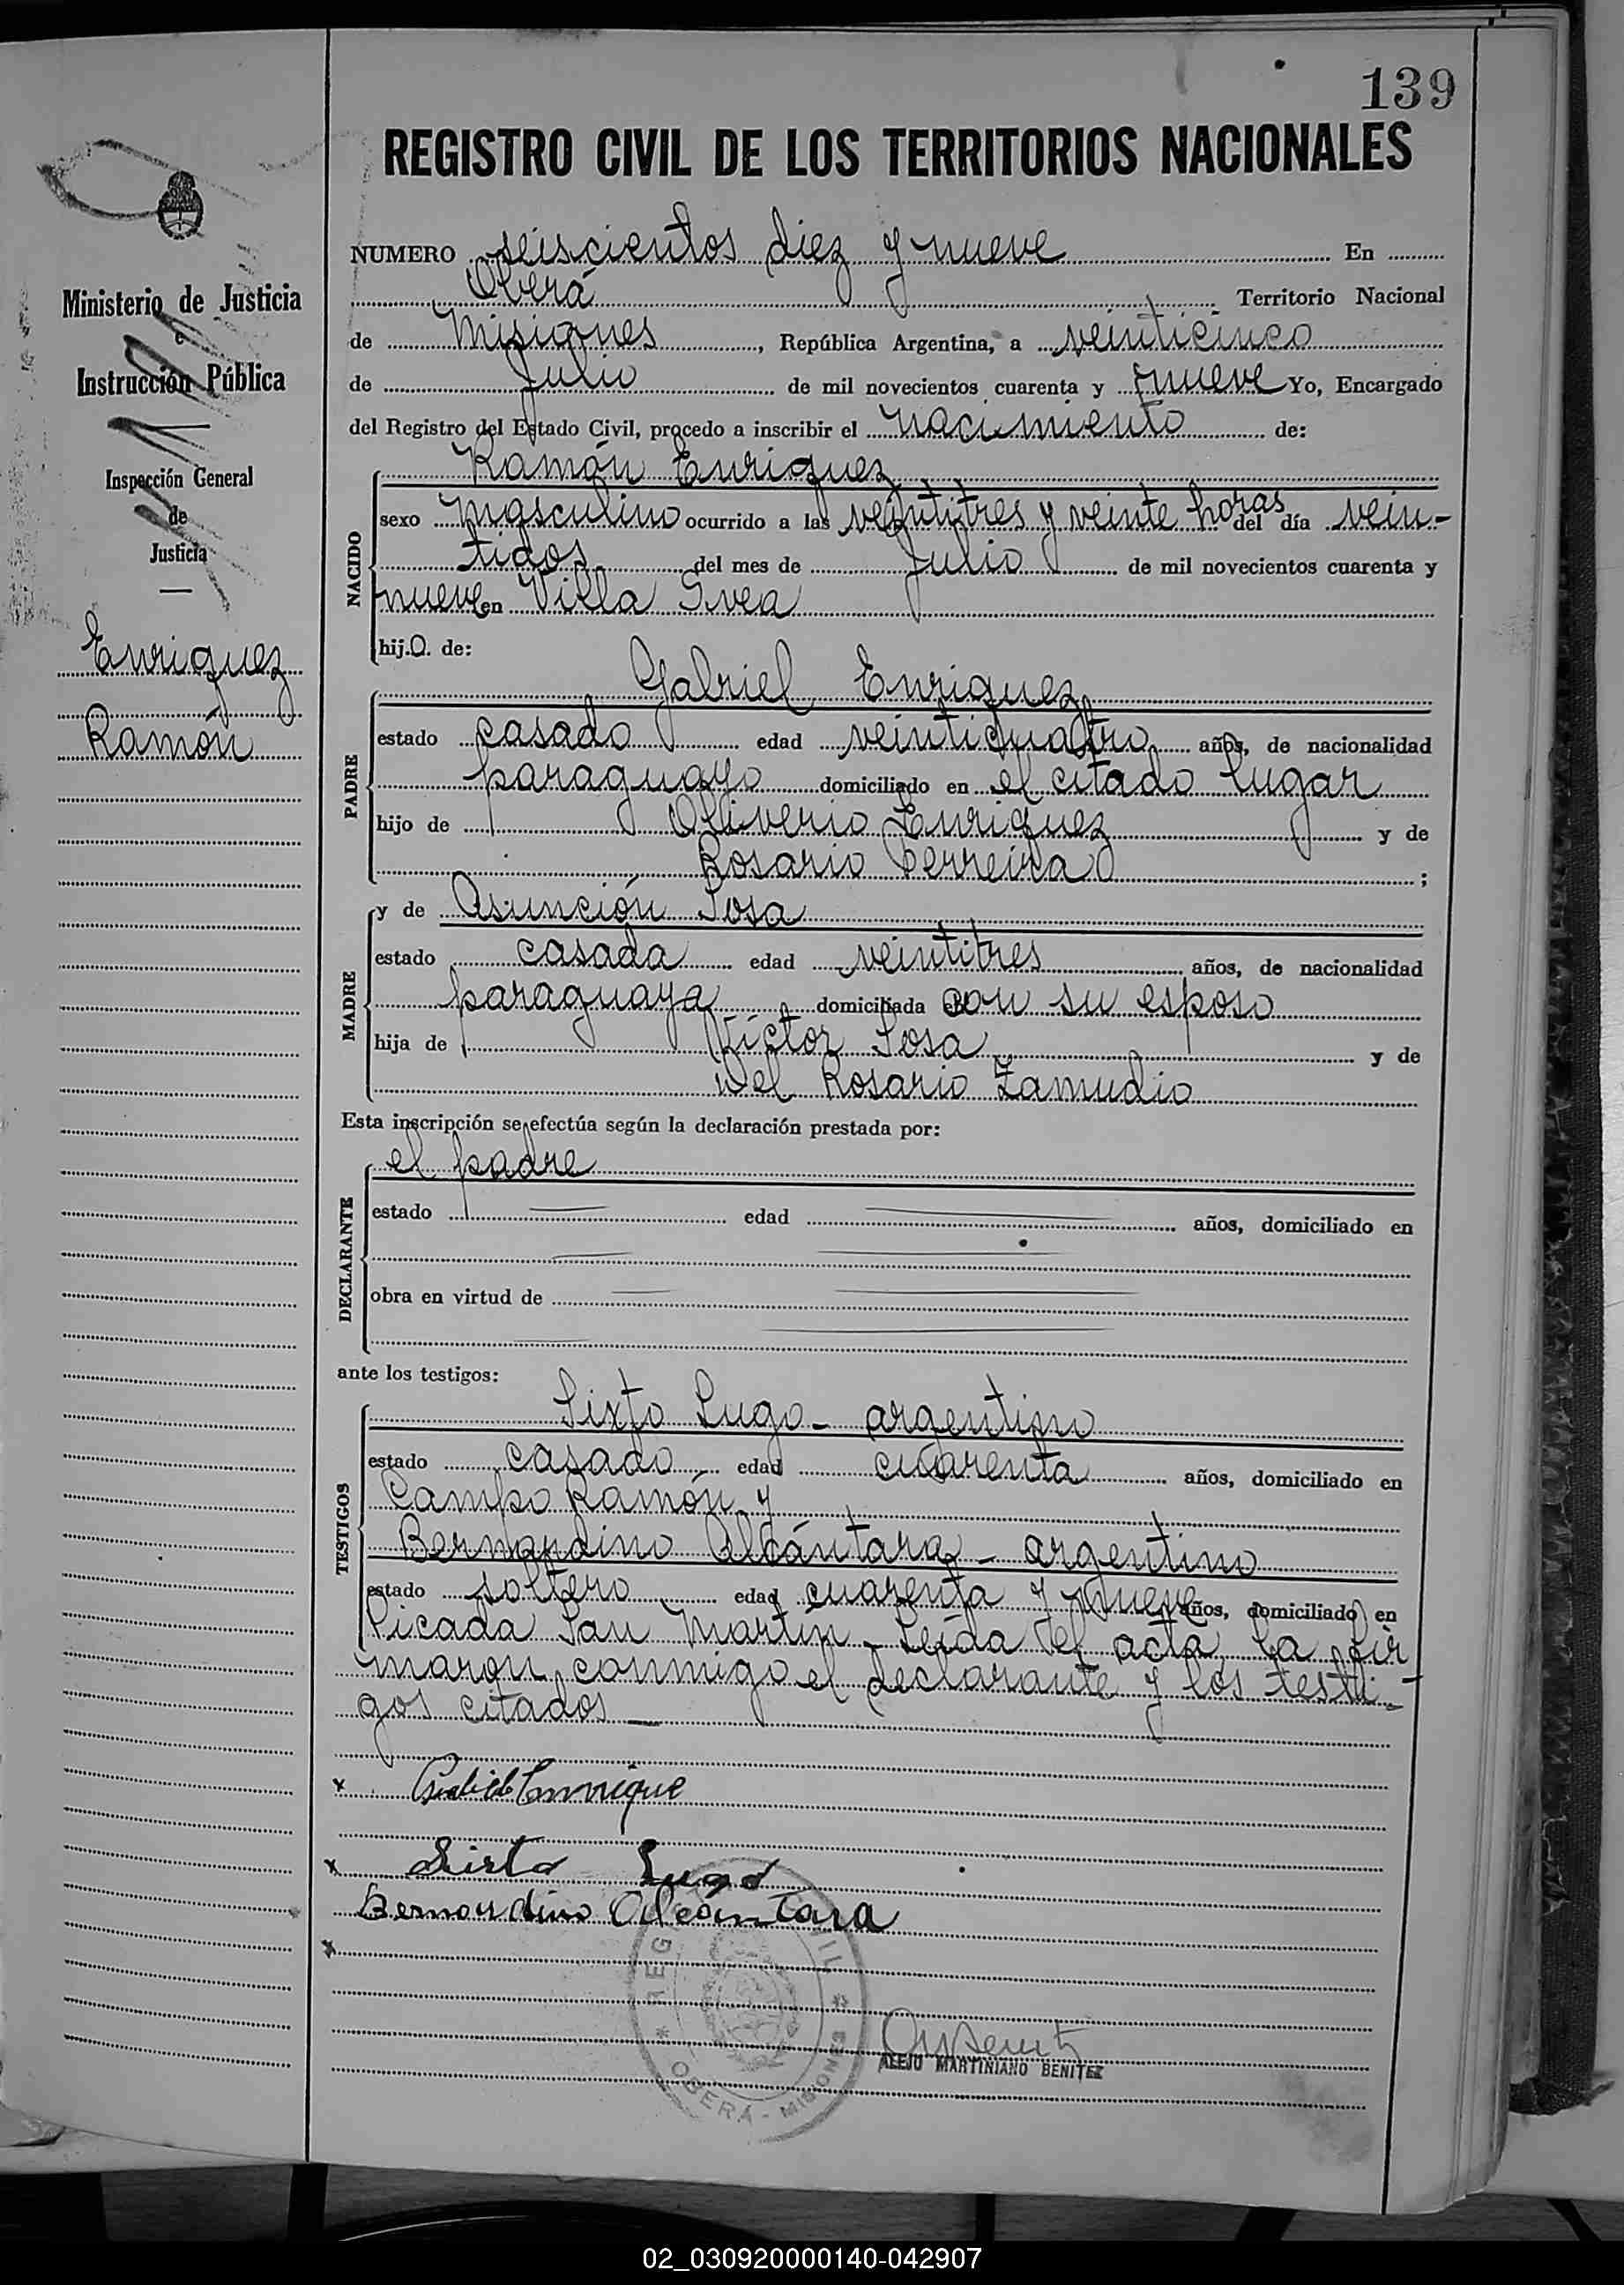 139
REGISTRO CIVIL DE LOS TERRITORIOS NACIONALES
Ministerio de Justicia
e
Instrucción Pública
Inspección General
de
Justicia
Enriquez
Ramón
NUMERO seiscientos diez y nueve En
Oberá Territorio Nacional
de Misiones, República Argentina, a veinticinco
de Julio de mil novecientos cuarenta y nueve Yo, Encargado
del Registro del Estado Civil, procedo a inscribir el nacimiento de:
NACIDO
Ramón Enriquez
sexo masculino ocurrido a las veintitres y veinte horas del día vein-
tidos del mes de Julio de mil novecientos cuarenta y
nueve en Villa Svea
hij.o. de:
PADRE
Gabriel Enriquez
estado casado edad veinticuatro años, de nacionalidad
paraguayo domiciliado en el citado lugar
hijo de Oliverio Enriquez y de
Rosario Ferreira ;
MADRE
y de Asunción Sosa
estado casada edad veintitres años, de nacionalidad
paraguaya domiciliada con su esposo
hija de Víctor Sosa y de
del Rosario Zamudio
Esta inscripción se efectúa según la declaración prestada por:
DECLARANTE
el padre
estado edad años, domiciliado en
obra en virtud de
ante los testigos:
TESTIGOS
Sixto Lugo - argentino
estado casado edad cuarenta años, domiciliado en
Campo Ramón y
Bernardino Alcántara - argentino
estado soltero edad cuarenta y nueve años, domiciliado en
Picada San Martín - Leída el acta, la fir
maron conmigo el declarante y los testi-
gos citados
x Gabriel Enrrique
x Sisto Lugo
Bernardino Alcántara
x
REG IL
OBERÁ - MISIONES
ALEJO MARTINIANO BENITEZ
02_030920000140-042907